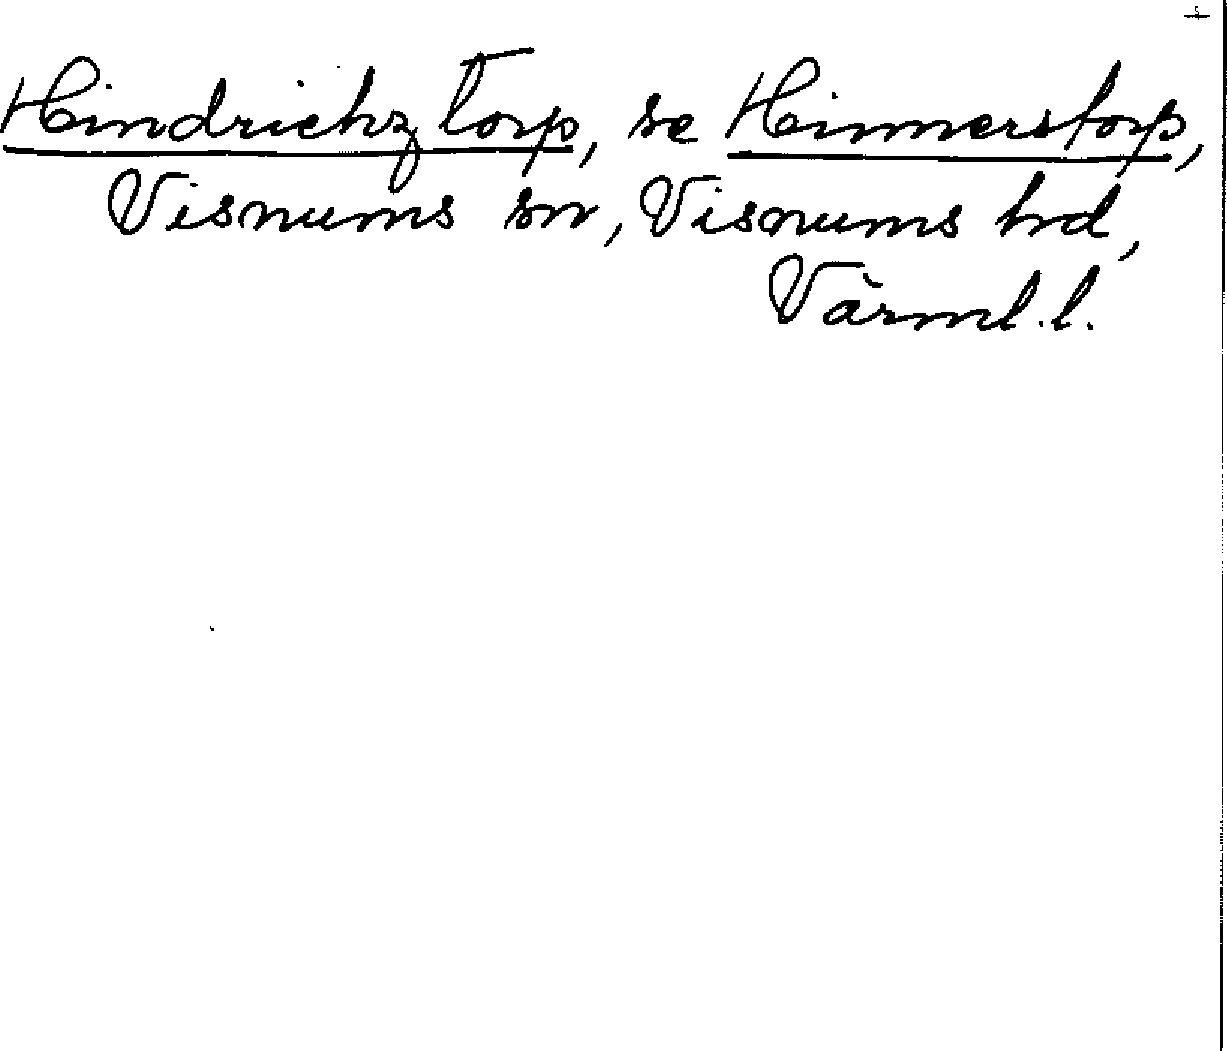 Hindrichz Torp, se Hinnerstorp,
Visnums sn, Visnums hd,
Värml. l.